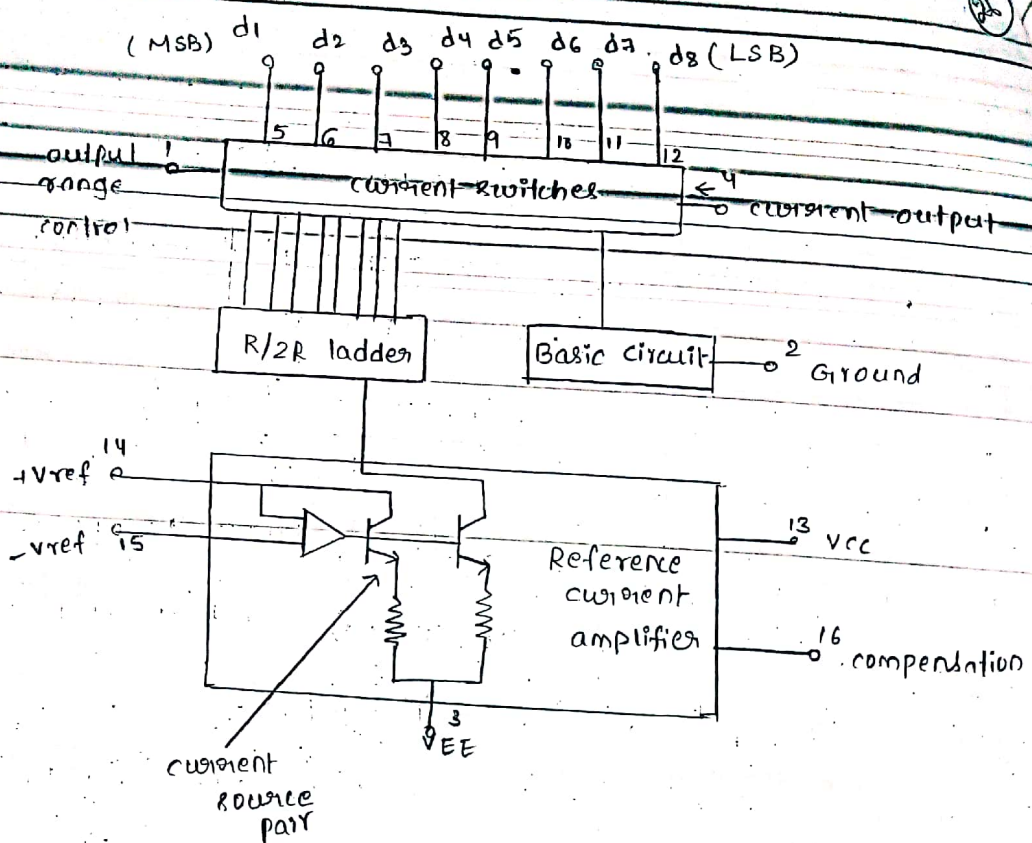 26
(MSB) d1 d2 d3 d4 d5 d6 d7 d8 (LSB)
5 6 7 8 9 10 11 12
output 1
range
control
current switches
4
current output
R/2R ladder
Basic circuit
2
Ground
14
+Vref
-Vref 15
13
Vcc
Reference
current
amplifier
16
compensation
3
VEE
current
source
pair